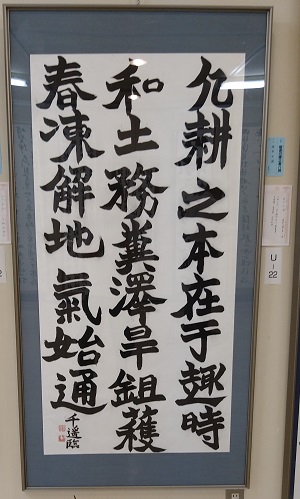 凡耕之本在于趣時
和土務糞澤旱鉏穫
春凍解地氣始通
千遥臨
U-22